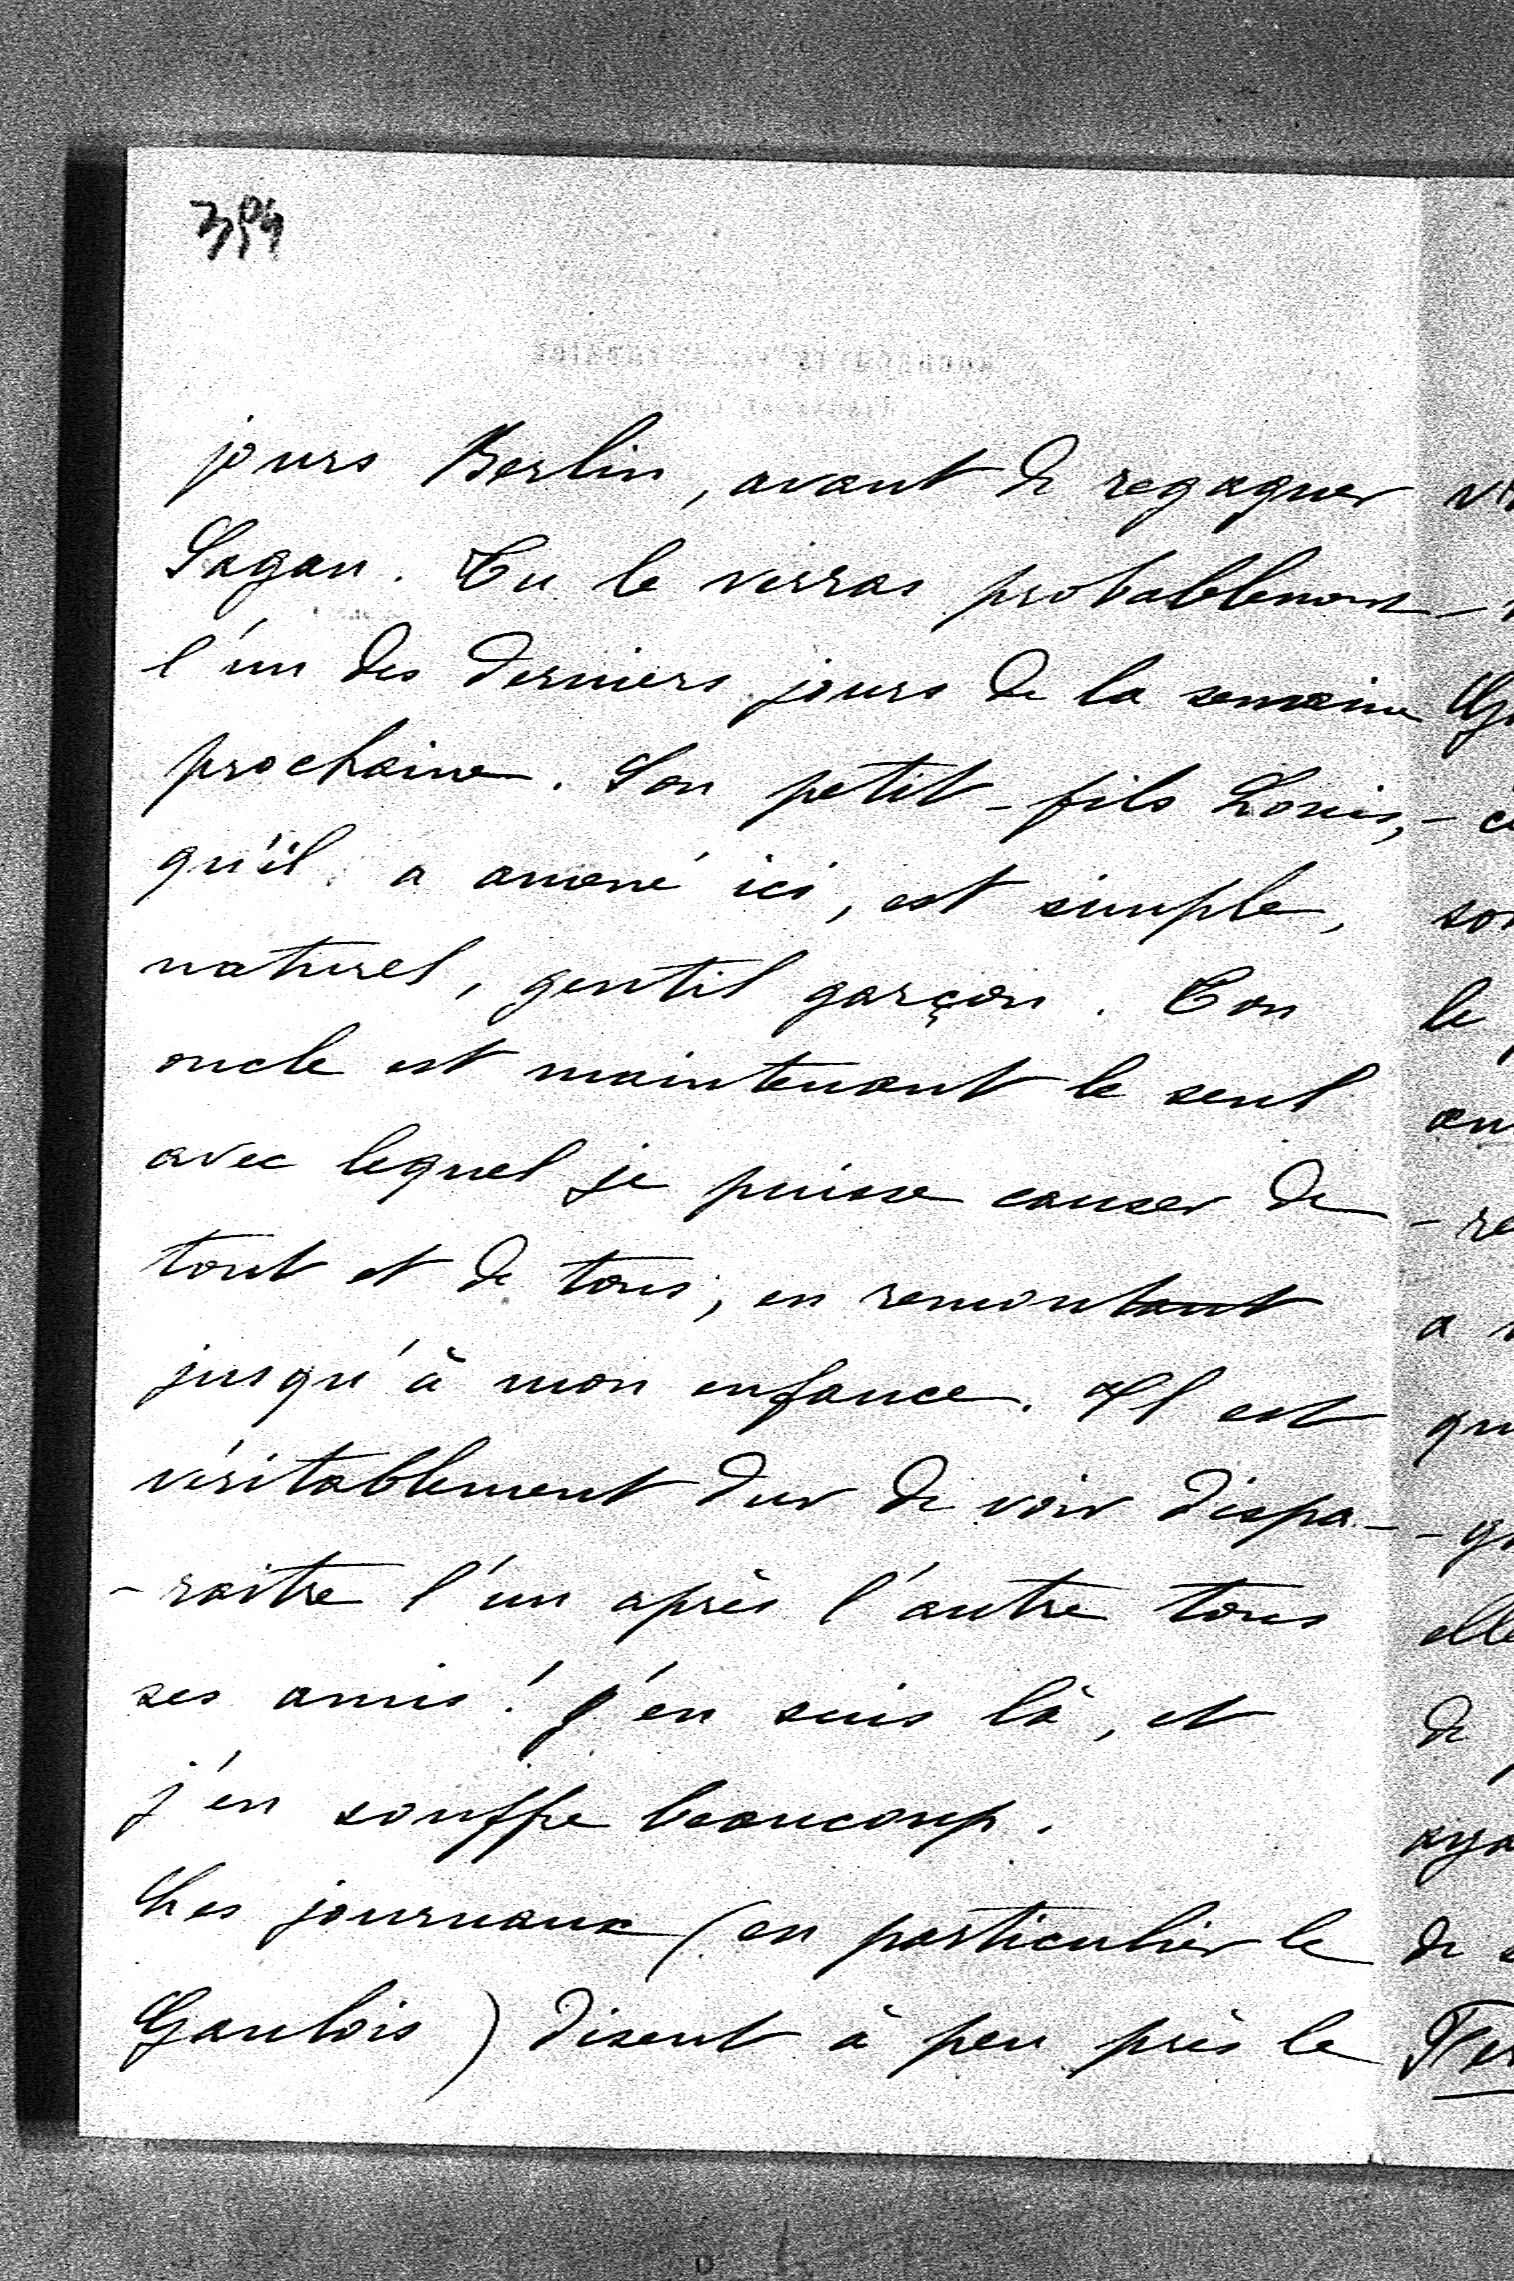 jours Berlin, avant de regagner
Sagan. Tu le verras probablement
l'un des derniers jours de la semaine
prochaine. Son petit-fils Louis,
qu'il a amené ici, est simple,
naturel, gentil garçon. Ton
oncle est maintenant le seul
avec lequel je puisse causer de
tout et de tous, en remontant
jusqu'à mon enfance. Il est
véritablement dur de voir dispa-
-raitre l'un après l'autre tous
ses amis! J'en suis là, et
j'en souffre beaucoup.
Les journaux (en particulier le
Gaulois) disent à peu près le